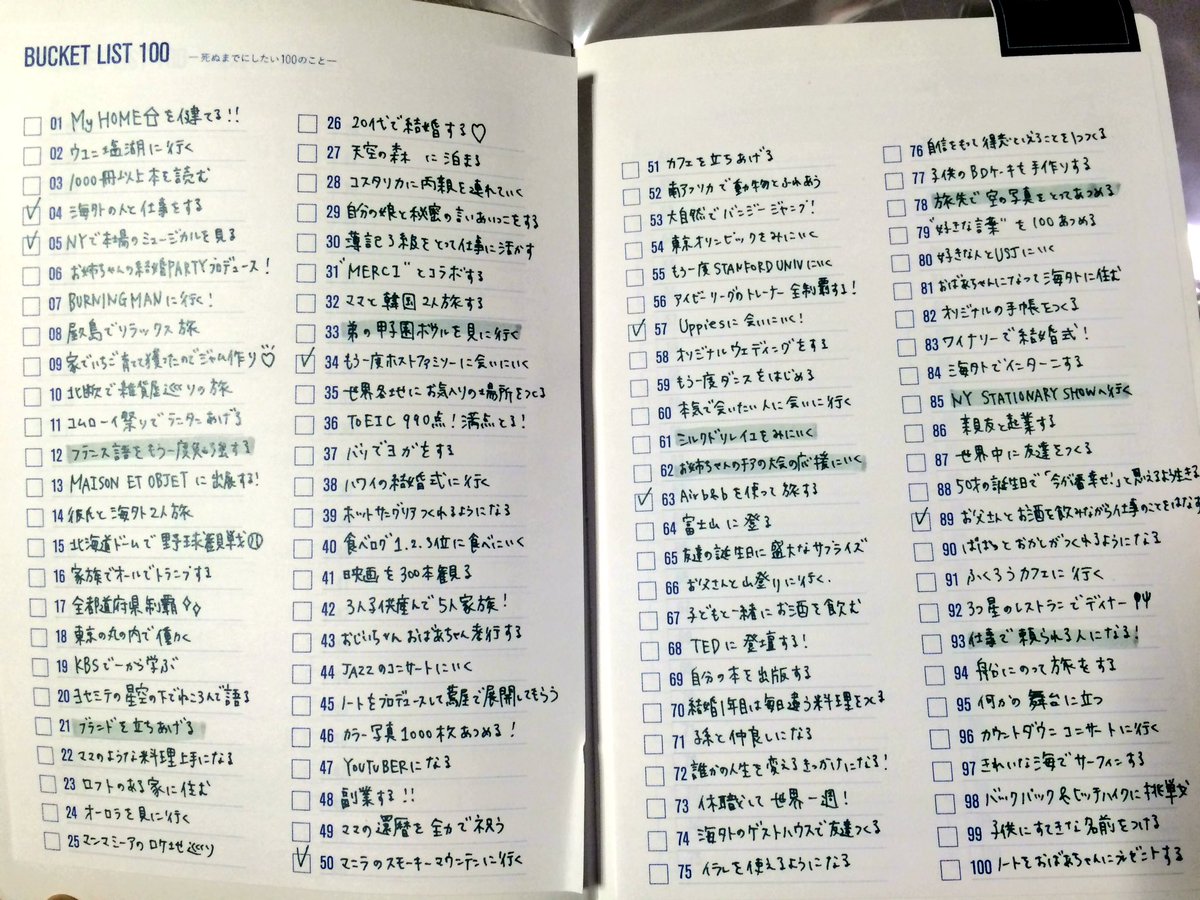 BUCKET LIST 100 —死ぬまでにしたい100のこと—
01 My HOMEを建てる!!
02 ウユニ塩湖に行く
03 1000冊以上本を読む
04 海外の人と仕事をする
05 NYで本場のミュージカルを見る
06 お姉ちゃんの結婚PARTYプロデュース!
07 BURNING MANに行く!
08 屋久島でリラックス旅
09 家でいちご育てて獲ったのでジャム作り♡
10 北欧で雑貨屋巡りの旅
11 コムローイ祭りでランタンあげる
12 フランス語をもう一度勉強する
13 MAISON ET OBJETに出展する!
14 彼氏と海外2人旅
15 北海道ドームで野球観戦
16 家族でオールでトランプする
17 全都道府県制覇
18 東京の丸の内で働く
19 KBSで一から学ぶ
20 ヨセミテの星空の下でねころんで語る
21 ブランドを立ちあげる
22 ママのような料理上手になる
23 ロフトのある家に住む
24 オーロラを見に行く
25 マンマミーアのロケ地巡り
26 20代で結婚する♡
27 天空の森に泊まる
28 コスタリカに両親を連れていく
29 自分の娘と秘密の言いあいっこをする
30 簿記3級をとって仕事に活かす
31 "MERCI"とコラボする
32 ママと韓国2人旅する
33 弟の甲子園ボウルを見に行く
34 もう一度ホストファミリーに会いにいく
35 世界各地にお気入りの場所をつくる
36 ToEIC 990点!満点とる!
37 バリでヨガをする
38 ハワイの結婚式に行く
39 ホットサングリアつくれるようになる
40 食べログ1.2.3位に食べにいく
41 映画を300本観る
42 3人子供産んで5人家族!
43 おじいちゃん おばあちゃん孝行する
44 JAZZのコンサートにいく
45 ノートをプロデュースして蔦屋で展開してもらう
46 カラー写真1000枚あつめる!
47 YOUTUBERになる
48 副業する!!
49 ママの還暦を全力で祝う
50 マニラのスモーキーマウンテンに行く
51 カフェを立ちあげる
52 南アフリカで動物とふれあう
53 大自然でバンジージャンプ!
54 東京オリンピックをみにいく
55 もう一度STANFORD UNIVにいく
56 アイビーリーグのトレーナー全制覇する!
57 Uppiesに会いにいく!
58 オリジナルウェディングをする
59 もう一度ダンスをはじめる
60 本気で会いたい人に会いに行く
61 ミルクドリレイユをみにいく
62 お姉ちゃんのチアの大会の応援にいく
63 Airb&bを使って旅する
64 富士山に登る
65 友達の誕生日に盛大なサプライズ
66 お父さんと山登りに行く.
67 子どもと一緒にお酒を飲む
68 TEDに登壇する!
69 自分の本を出版する
70 結婚1年目は毎日違う料理をつくる
71 孫と仲良しになる
72 誰かの人生を変えるきっかけになる!
73 休職して世界一週!
74 海外のゲストハウスで友達つくる
75 イラレを使えるようになる
76 自信をもって得意といえることを1つつくる
77 子供のBDケーキを手作りする
78 旅先で空の写真をとってあつめる
79 "好きな言葉"を100あつめる
80 好きな人とUSJにいく
81 おばあちゃんになって海外に住む
82 オリジナルの手帳をつくる
83 ワイナリーで結婚式!
84 海外でインターンする
85 NY STATIONARY SHOWへ行く
86 親友と起業する
87 世界中に友達をつくる
88 50才の誕生日で「今が一番幸せ!」と思えるよう生きる
89 お父さんとお酒を飲みながら仕事のことをはなす
90 ぱぱっとおかとがつくれるようになる
91 ふくろうカフェに行く
92 3つ星のレストランでディナー
93 仕事で頼られる人になる!
94 船にのって旅をする
95 何かの舞台に立つ
96 カウントダウンコンサートに行く
97 きれいな海でサーフィンする
98 バックパック&ヒッチハイクに挑戦
99 子供にすてきな名前をつける
100 ノートをおばあちゃんにプレゼントする